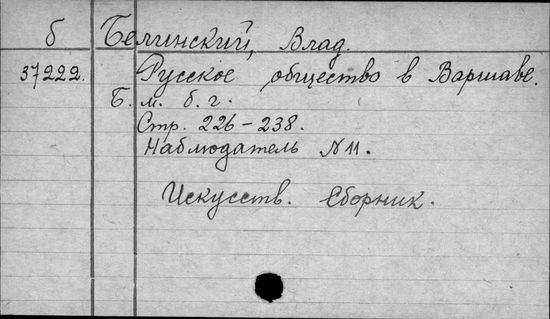 б Белинский, Влад.
37222. Русское общество в Варшаве.
Б. м. б. г.
Стр. 226-238.
Наблюдатель N 11.
Искусств. Сборник.